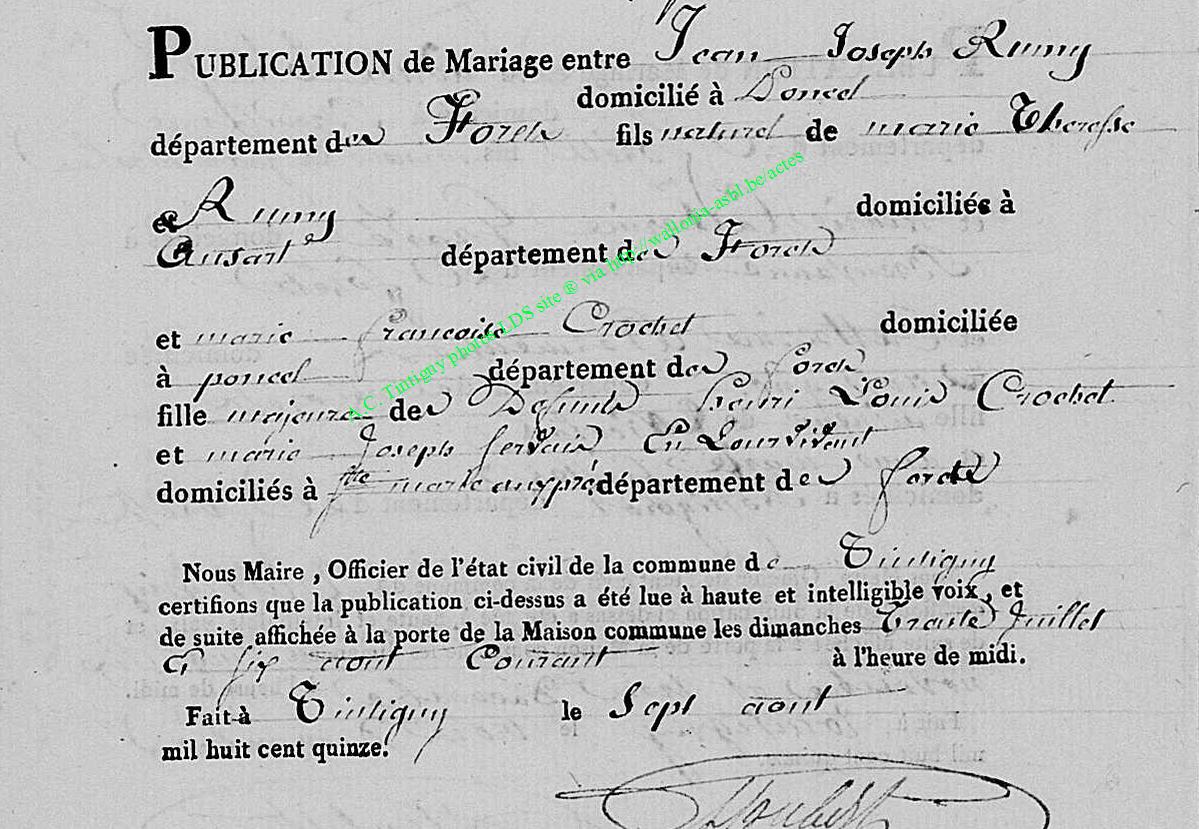 PUBLICATION de Mariage entre Jean Joseph Rumy
domicilié à Poncel
département des Forets fils naturel de marie Therese
et Rumy domiciliés à
Ansart département des Forets
et marie françoise Crochet domiciliée
à poncel département des forets
fille majeure de Defunts henri Louis Crochet
et marie Joseph Gervais En Leur Vivant
domiciliés à ste marie département des forets
Nous Maire, Officier de l'état civil de la commune de Tintigny
certifions que la publication ci-dessus a été lue à haute et intelligible voix, et
de suite affichée à la porte de la Maison commune les dimanches Trente Juillet
et six aout Courant à l'heure de midi.
Fait à Tintigny le Sept aout
mil huit cent quinze.
A.C. Tintigny photos LDS site ® via http://wallonia-asbl.be/actes